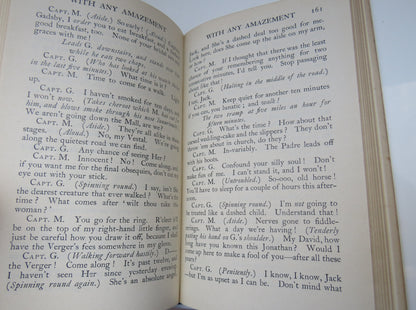 WITH ANY AMAZEMENT
CAPT. M. (Aside.) So early! (Aloud.)
Gadsby, I order you to eat breakfast, and
good breakfast, too. None of your
graces with me!
Leads G. downstairs, and stands over
him while he eats two chops.
CAPT. G. (Who has looked at his watch
CAPT. M. Time to come for a walk. Light
up.
CAPT. G. I haven't smoked for ten days, and
I won't now. (Takes cheroot which M. has
him, and blows smoke through his nose
We aren't going down the Mall, are we?
CAPT. M. (Aside.) They're all alike in these
stages. (Aloud.) No, my Vestal. We're going
along the quietest road we can find.
CAPT. G. Any chance of seeing Her?
CAPT. M. Innocent! No! Come along,
if you want me for the final obsequies, don't
eye out with your stick.
CAPT. G. (Spinning round.) I say, isn't She
the dearest creature that ever walked? What's the
time? What comes after 'wilt thou take this
woman'?
CAPT. M. You go for the ring. R'clect it'll
be on the top of my right-hand little finger, and
just be careful how you draw it off, because I shall
have the Verger's fees somewhere in my glove.
CAPT. G. (Walking forward hastily.) D—
the Verger! Come along! It's past twelve, and
I haven't seen Her since yesterday evening.
(Spinning round again.) She's an absolute angel,
WITH ANY AMAZEMENT 161
Jack, and She's a dashed deal too good for me.
Look here, does She come up the aisle on my arm,
or how?
CAPT. M. If I thought that there was the least
chance of your remembering anything for two
consecutive minutes, I'd tell you. Stop passaging
about like that!
CAPT. G. (Halting in the middle of the road.)
I say, Jack.
CAPT. M. Keep quiet for another ten minutes
if you can, you lunatic; and walk!
The two tramp at five miles an hour for
fifteen minutes.
CAPT. G. What's the time? How about that
cursed wedding-cake and the slippers? They don't
throw 'em about in church, do they?
CAPT. M. In-variably. The Padre leads off
with his boots.
CAPT. G. Confound your silly soul! Don't
make fun of me. I can't stand it, and I won't!
CAPT. M. (Untroubled.) So-ooo, old horse!
You'll have to sleep for a couple of hours this after-
noon.
CAPT. G. (Spinning round.) I'm not going to
be treated like a dashed child. Understand that!
CAPT. M. (Aside.) Nerves gone to fiddle-
strings. What a day we're having! (Tenderly
putting his hand on G.'s shoulder.) My David, how
long have you known this Jonathan? Would I
come up here to make a fool of you—after all these
years?
CAPT. G. (Penitently.) I know, I know, Jack
—but I'm as upset as I can be. Don't mind what